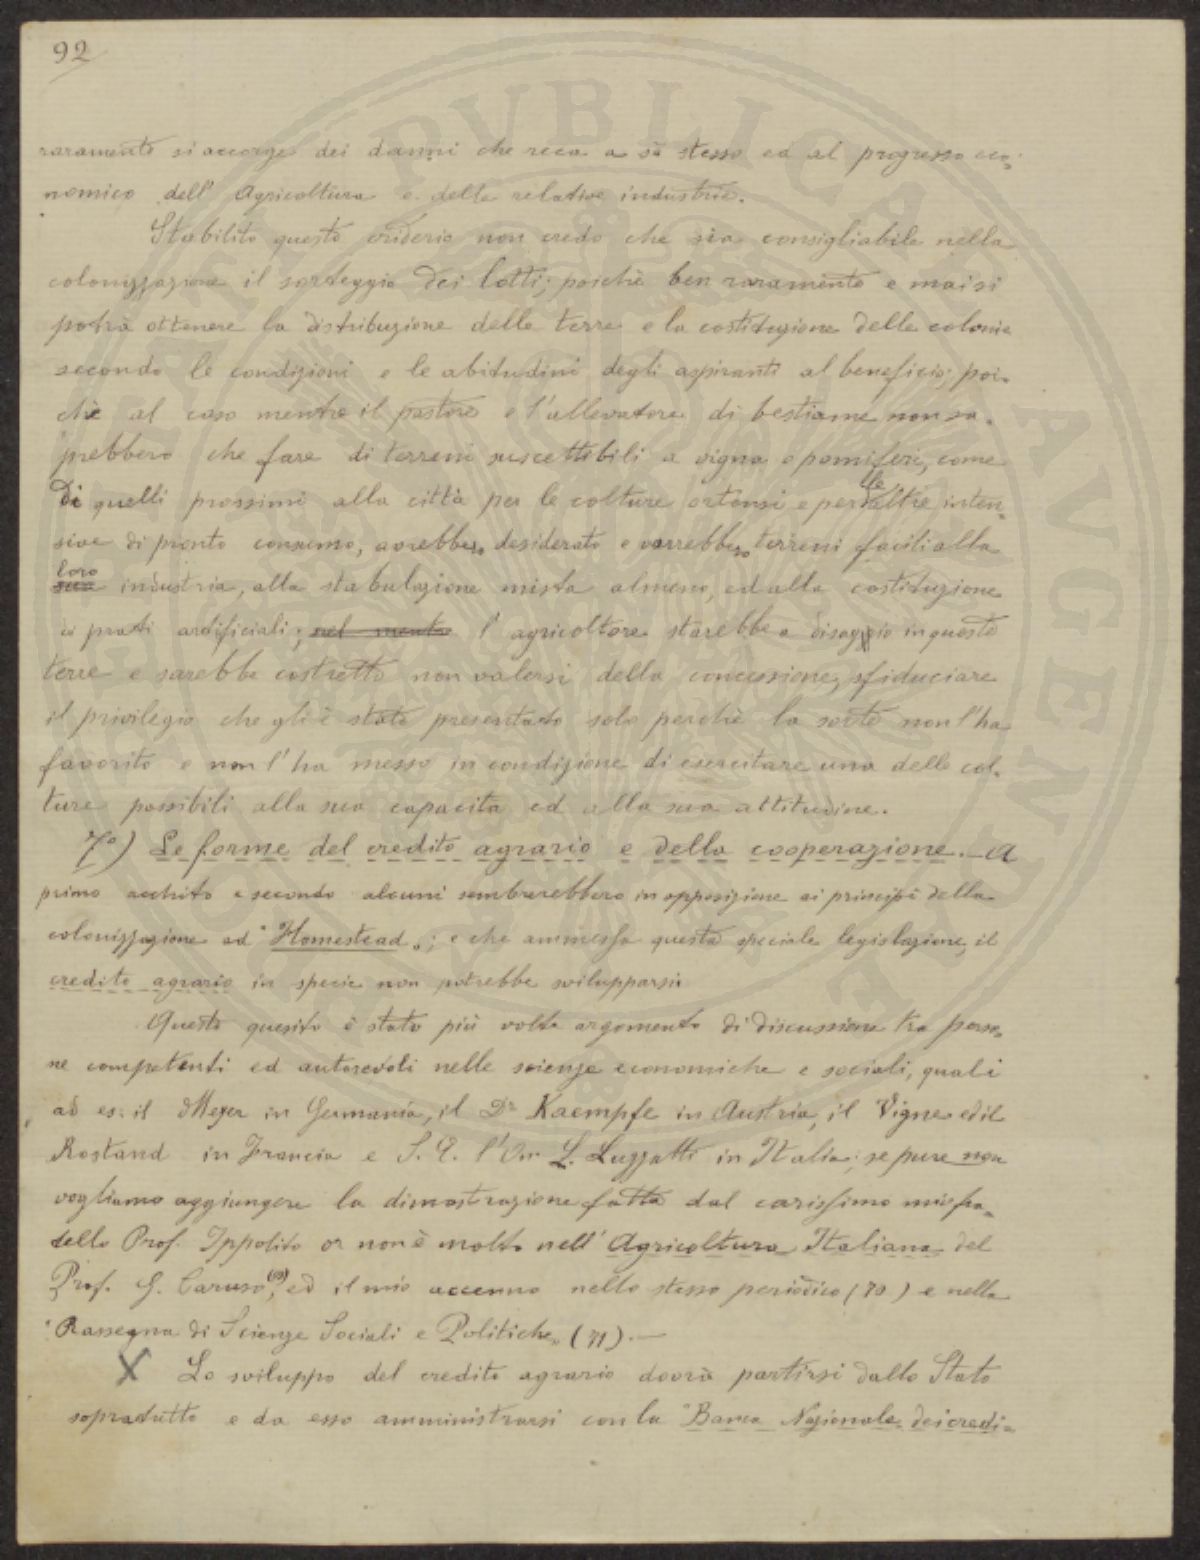 92
raramente si accorge dei danni che reca a sè stesso ed al progresso eco-
nomico dell' Agricoltura e delle relative industrie.
Stabilito questo criterio non credo che sia consigliabile nella
colonizzazione il sorteggio dei lotti; poichè ben raramente e mai si
potrà ottenere la distribuzione delle terre e la costituzione delle colonie
secondo le condizioni e le abitudini degli aspiranti al beneficio; poi-
chè al caso mentre il pastore e l'allevatore di bestiame non sa-
prebbero che fare di terreni suscettibili a vigna o pomiferi, come
di quelli prossimi alla città per le colture ortensi e per altre inten-
lle
sive di pronto consumo, avrebbero desiderato e vorrebbero terreni facili alla
loro
sua industria, alla stabulazione mista almeno, ed alla costituzione
di prati artificiali; nel mentre l' agricoltore starebbe a disaggio in queste
terre e sarebbe costretto non valersi della concessione, sfiduciare
il privilegio che gli è stato presentato solo perchè la sorte non l'ha
favorito e non l'ha messo in condizione di esercitare una delle col-
ture possibili alla sua capacità ed alla sua attitudine.
7°) Le forme del credito agrario e della cooperazione. - A
primo acchito e secondo alcuni sembrerebbero in opposizione ai principî della
colonizzazione ad "Homestead„; e che ammessa questa speciale legislazione, il
credito agrario in specie non potrebbe svilupparsi.
Questo quesito è stato più volte argomento di discussione tra perso-
ne competenti ed autorevoli nelle scienze economiche e sociali, quali
ad es: il Meyer in Germania, il Dr Kaempfe in Austria, il Vigne ed il
Rostand in Francia e S. E. l'On. L. Luzzatti in Italia; se pure non
vogliamo aggiungere la dimostrazione fatta dal carissimo mio fra-
tello Prof. Ippolito or non è molto nell' Agricoltura Italiana del
Prof. G. Caruso, ed il mio accenno nello stesso periodico (70) e nella
"Rassegna di Scienze Sociali e Politiche„ (71). —
X Lo sviluppo del credito agrario dovrà partirsi dallo Stato
sopratutto e da esso amministrarsi con la "Banca Nazionale dei credi-
PVBLICA AVGENDO